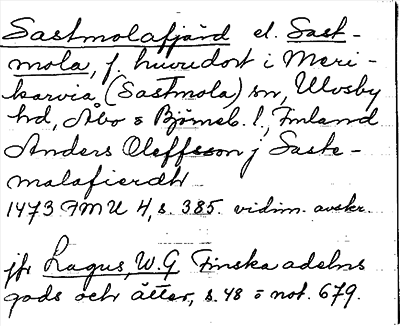 Sastmolafjärd el. Sast-
mola, f. huvudort i Meri-
karvia (Sastmola) sn, Ulvsby
hd, Åbo o Björneb. l., Finland
Anders Oleffsson j Saste-
malafierdh
1473 FMU 4, s. 385. vidim. avskr.
jfr Lagus, W.G Finska adelns
gods och ätter, s. 48 o not. 679.